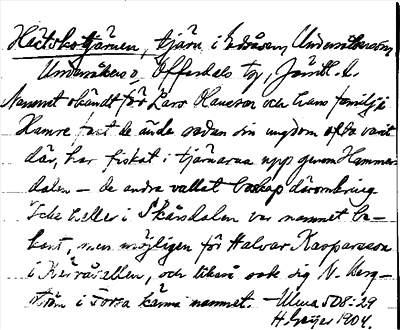 Hästskotjärnen, tjärn i Edsåsen, Undersåkers sn,
Undersåkers o. Offerdals tg, Jämtl. l.
Namnet okändt för Lars Olausson och hans familj i
Hamre fast de ända sedan sin ungdom ofta varit
där, har fiskat i tjärnarna upp genom Hammar-
dalen – de andra vallat boskap däromkring.
Icke heller i Skärsdalen var namnet be-
kant, men möjligen för Halvar Kasparsson
i vallen, och likaså sade sig N. Berg-
ström i Forsa känna namnet. – Ulma 508:29
H. Geijer 1904.